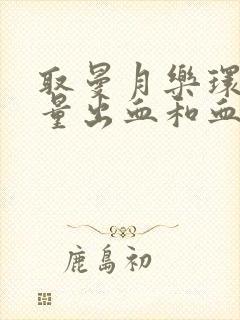 取曼月樂環
量出血和血
鹿島初